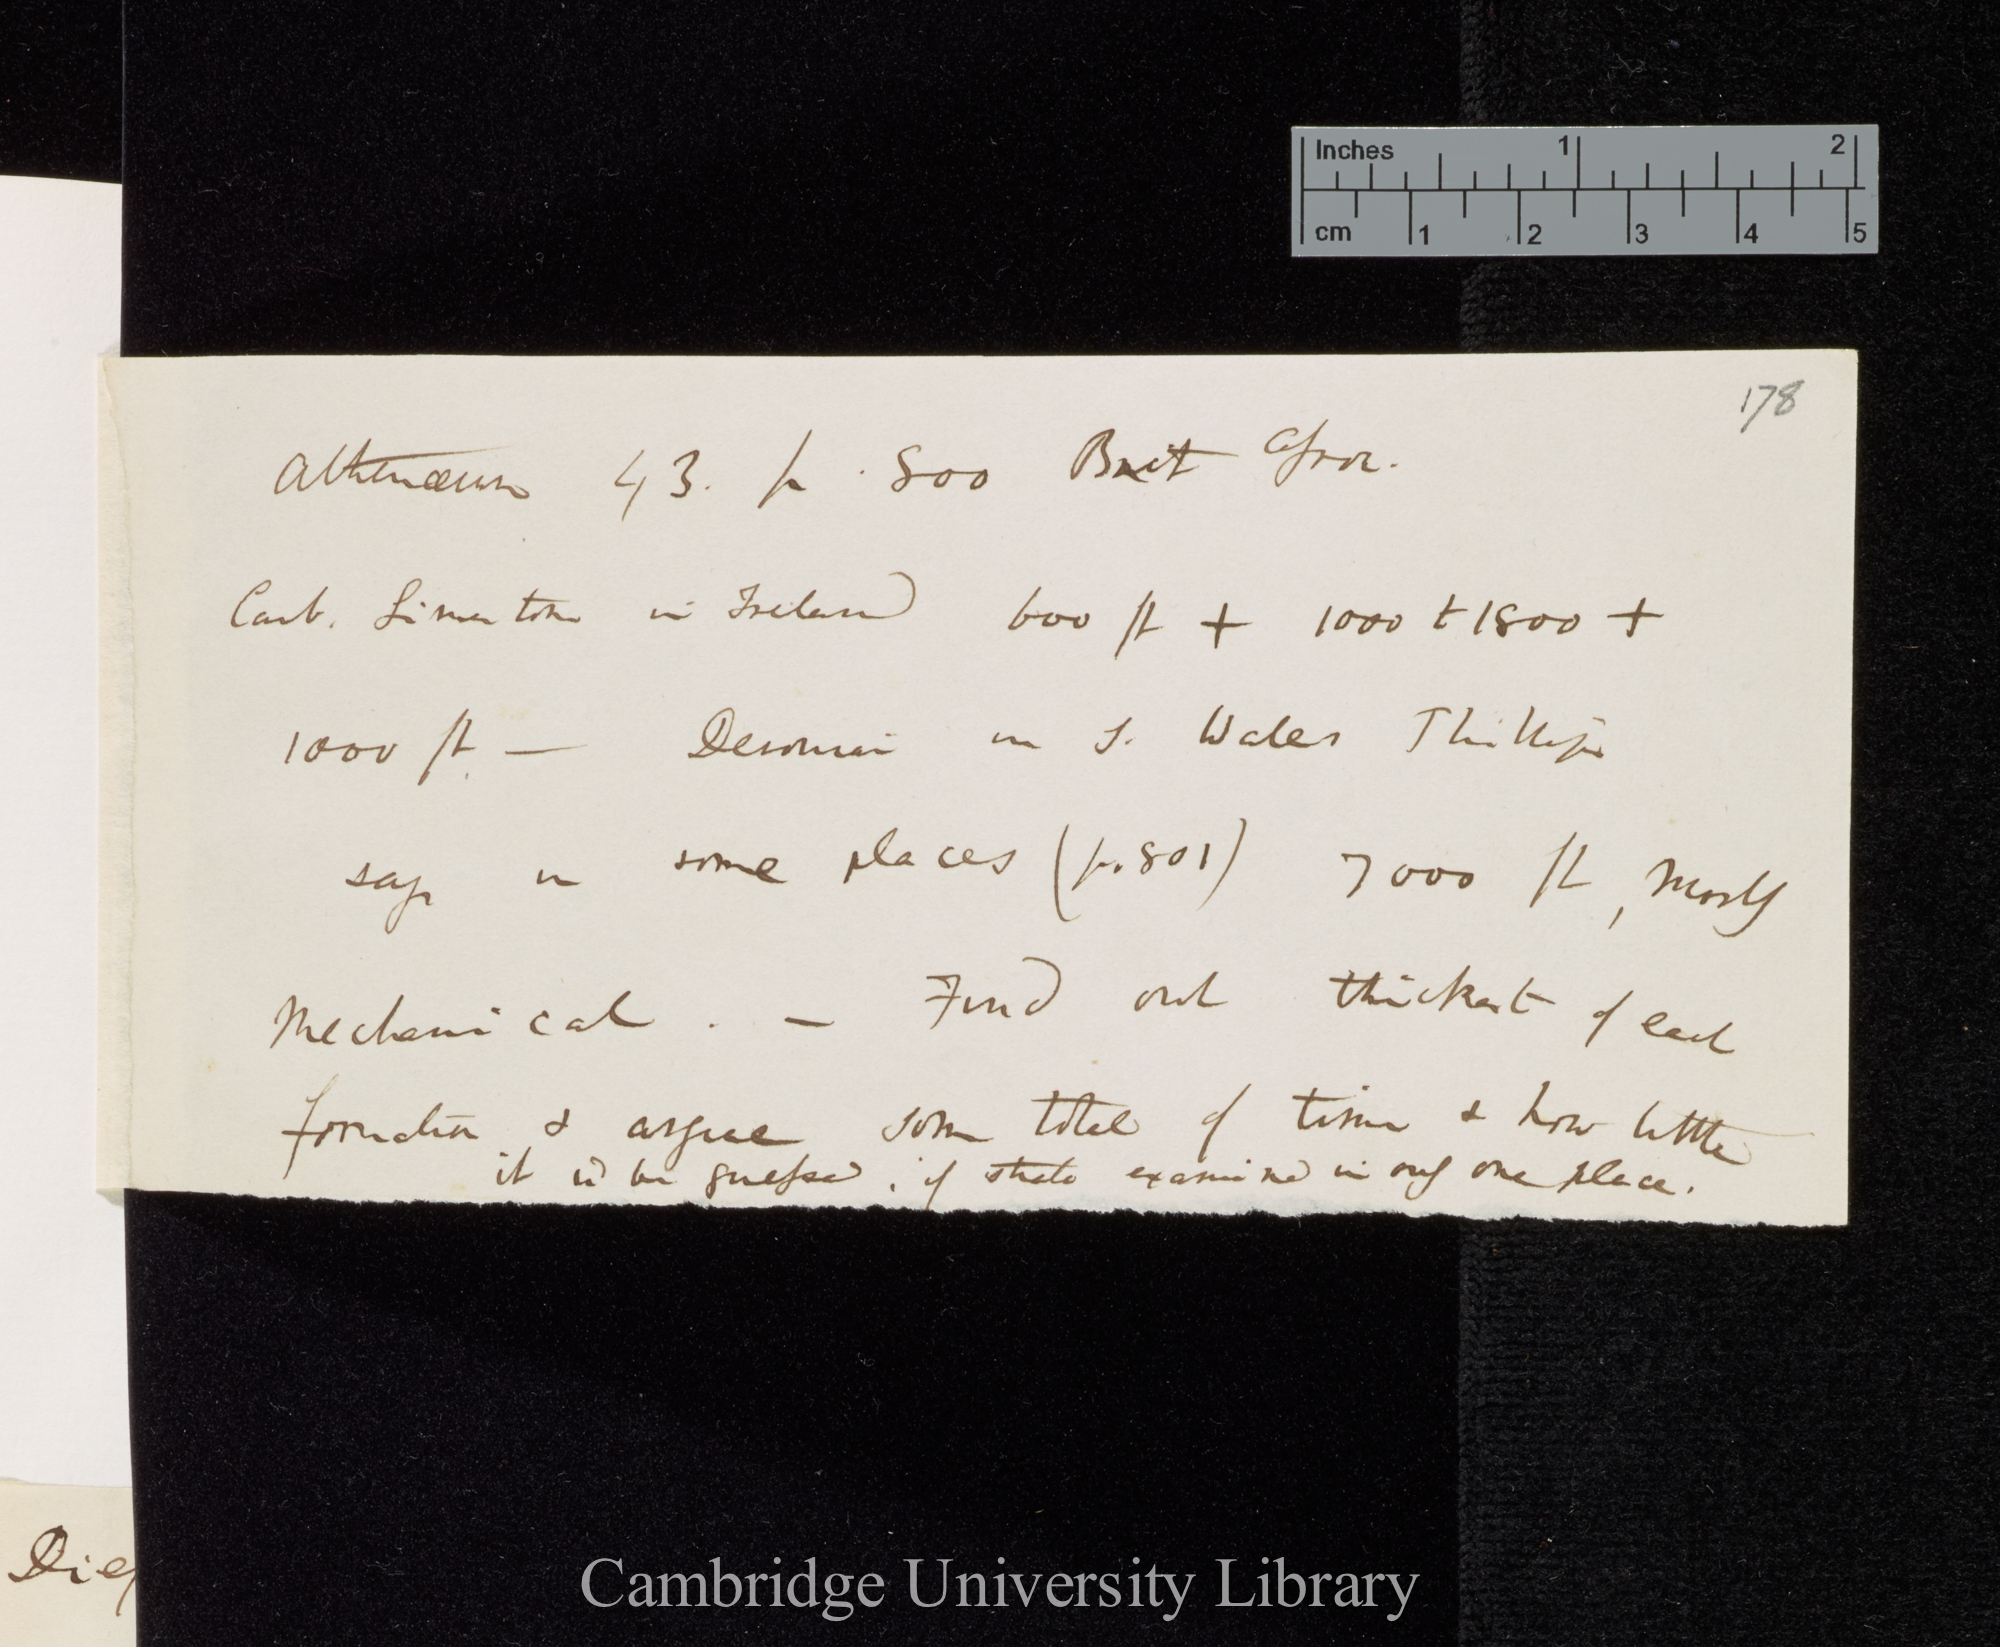 Inches 1 2
cm 1 2 3 4 5
178
Athenæum 43. p. 800 Brit Assoc.
Carb. Limestone in Ireland 600 ft + 1000 to 1800 +
1000 ft — Devonian in S. Wales Phillips
says in some places (p. 801) 7000 ft, mostly
mechanical. — Find out thickest of each
formation & argue some total of time & how little
it cd be guessed, if strata examined in only one place.
Cambridge University Library